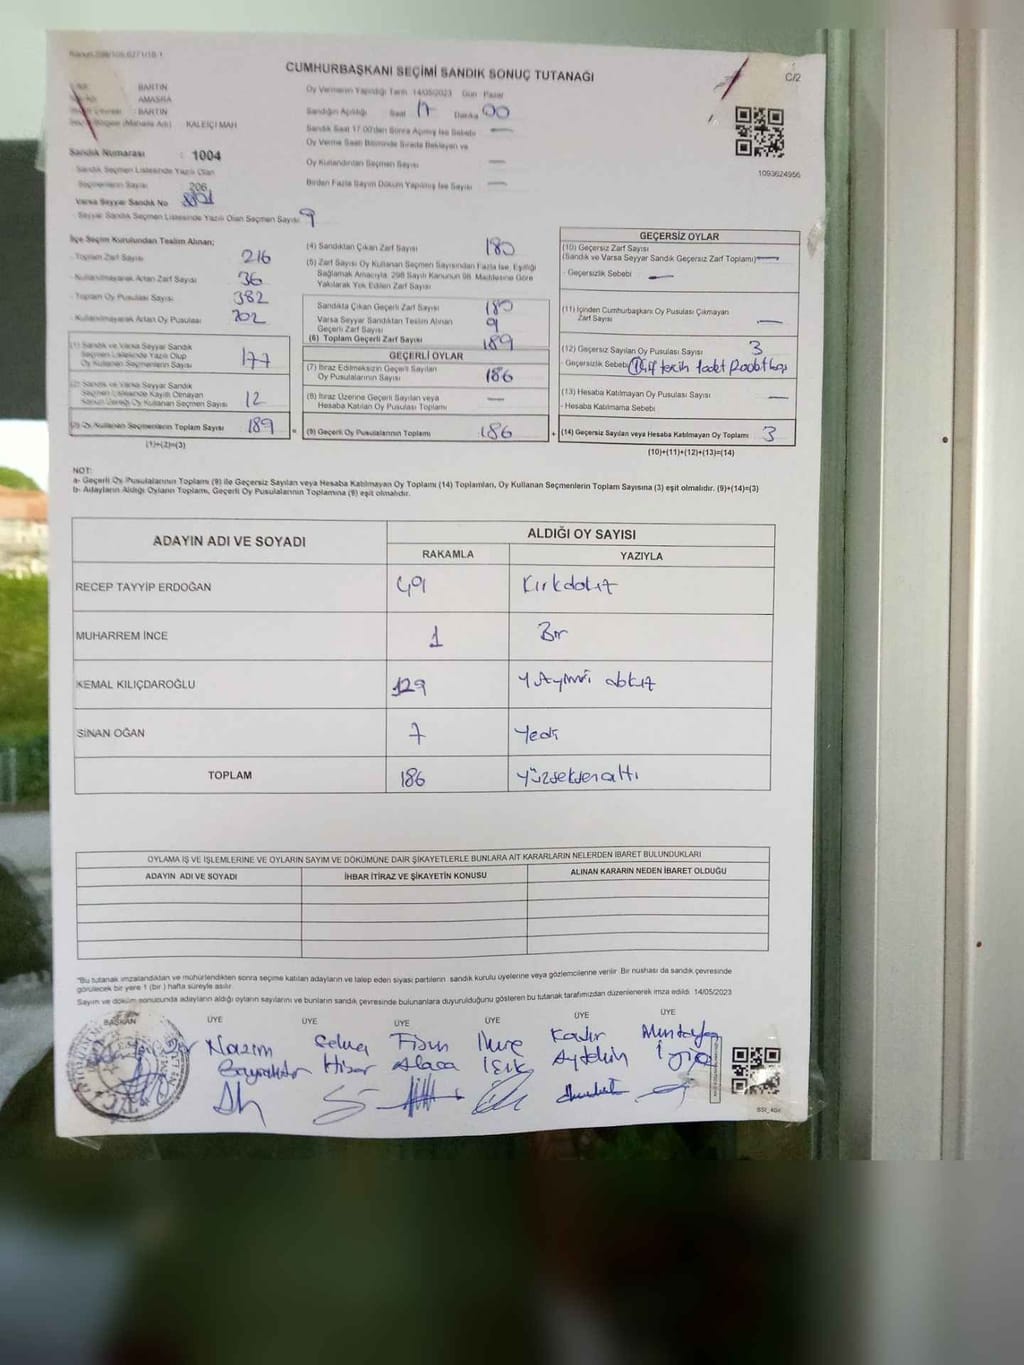 CUMHURBAŞKANI SEÇİMİ SANDIK SONUÇ TUTANAĞI
C/2
BARTIN
AMASRA
BARTIN
KALEİÇİ MAH
Oy Vermenin Yapıldığı Tarih 14/05/2023 Gün Pazar
Sandığın Açıldığı Saat 17 Dakika 00
Sandık Saat 17.00'den Sonra Açılmış İse Sebebi
Oy Verme Saati Bitiminde Sırada Bekleyen ve
Oy Kullandırılan Seçmen Sayısı
Birden Fazla Sayım Döküm Yapılmış İse Sayısı
1093624956
Sandık Numarası : 1004
Sandık Seçmen Listesinde Yazılı Olan
Seçmenlerin Sayısı 206
Varsa Seyyar Sandık No
Seyyar Sandık Seçmen Listesinde Yazılı Olan Seçmen Sayısı 9
İlçe Seçim Kurulundan Teslim Alınan;
- Toplam Zarf Sayısı 216
- Kullanılmayarak Artan Zarf Sayısı 36
- Toplam Oy Pusulası Sayısı 382
- Kullanılmayarak Artan Oy Pusulası 202
(1) Sandık ve Varsa Seyyar Sandık
Seçmen Listesinde Yazılı Olup
Oy Kullanan Seçmenlerin Sayısı 177
(2) Sandık ve Varsa Seyyar Sandık
Seçmen Listesinde Kayıtlı Olmayan
Kanun Gereği Oy Kullanan Seçmen Sayısı 12
(3) Oy Kullanan Seçmenlerin Toplam Sayısı 189
(1)+(2)=(3)
(4) Sandıktan Çıkan Zarf Sayısı 180
(5) Zarf Sayısı Oy Kullanan Seçmen Sayısından Fazla İse, Eşitliği
Sağlamak Amacıyla, 298 Sayılı Kanunun 98. Maddesine Göre
Yakılarak Yok Edilen Zarf Sayısı
Sandıkta Çıkan Geçerli Zarf Sayısı 180
Varsa Seyyar Sandıktan Teslim Alınan
Geçerli Zarf Sayısı 9
(6) Toplam Geçerli Zarf Sayısı 189
GEÇERLİ OYLAR
(7) İtiraz Edilmeksizin Geçerli Sayılan
Oy Pusulalarının Sayısı 186
(8) İtiraz Üzerine Geçerli Sayılan veya
Hesaba Katılan Oy Pusulası Toplamı
= (9) Geçerli Oy Pusulalarının Toplamı 186
GEÇERSİZ OYLAR
(10) Geçersiz Zarf Sayısı
(Sandık ve Varsa Seyyar Sandık Geçersiz Zarf Toplamı)
- Geçersizlik Sebebi
(11) İçinden Cumhurbaşkanı Oy Pusulası Çıkmayan
Zarf Sayısı
(12) Geçersiz Sayılan Oy Pusulası Sayısı 3
- Geçersizlik Sebebi
(13) Hesaba Katılmayan Oy Pusulası Sayısı
- Hesaba Katılmama Sebebi
+ (14) Geçersiz Sayılan veya Hesaba Katılmayan Oy Toplamı 3
(10)+(11)+(12)+(13)=(14)
NOT:
a- Geçerli Oy Pusulalarının Toplamı (9) ile Geçersiz Sayılan veya Hesaba Katılmayan Oy Toplamı (14) Toplamları, Oy Kullanan Seçmenlerin Toplam Sayısına (3) eşit olmalıdır. (9)+(14)=(3)
b- Adayların Aldığı Oyların Toplamı, Geçerli Oy Pusulalarının Toplamına (9) eşit olmalıdır.
ADAYIN ADI VE SOYADI ALDIĞI OY SAYISI
RAKAMLA YAZIYLA
RECEP TAYYİP ERDOĞAN 49 Kırkdokuz
MUHARREM İNCE 1 Bir
KEMAL KILIÇDAROĞLU 129
SİNAN OĞAN 7 Yedi
TOPLAM 186 Yüzseksenaltı
OYLAMA İŞ VE İŞLEMLERİNE VE OYLARIN SAYIM VE DÖKÜMÜNE DAİR ŞİKAYETLERLE BUNLARA AİT KARARLARIN NELERDEN İBARET BULUNDUKLARI
ADAYIN ADI VE SOYADI İHBAR İTİRAZ VE ŞİKAYETİN KONUSU ALINAN KARARIN NEDEN İBARET OLDUĞU
*Bu tutanak imzalandıktan ve mühürlendikten sonra seçime katılan adayların ve talep eden siyasi partilerin sandık kurulu üyelerine veya gözlemcilerine verilir. Bir nüshası da sandık çevresinde
görülecek bir yere 1 (bir) hafta süreyle asılır.
Sayım ve döküm sonucunda adayların aldığı oyların sayılarını ve bunların sandık çevresinde bulunanlara duyurulduğunu gösteren bu tutanak tarafımızdan düzenlenerek imza edildi. 14/05/2023
BAŞKAN ÜYE ÜYE ÜYE ÜYE ÜYE ÜYE
Nazım Selma Kadir
Bayraktar Hisar Alaca Işık Aytekin